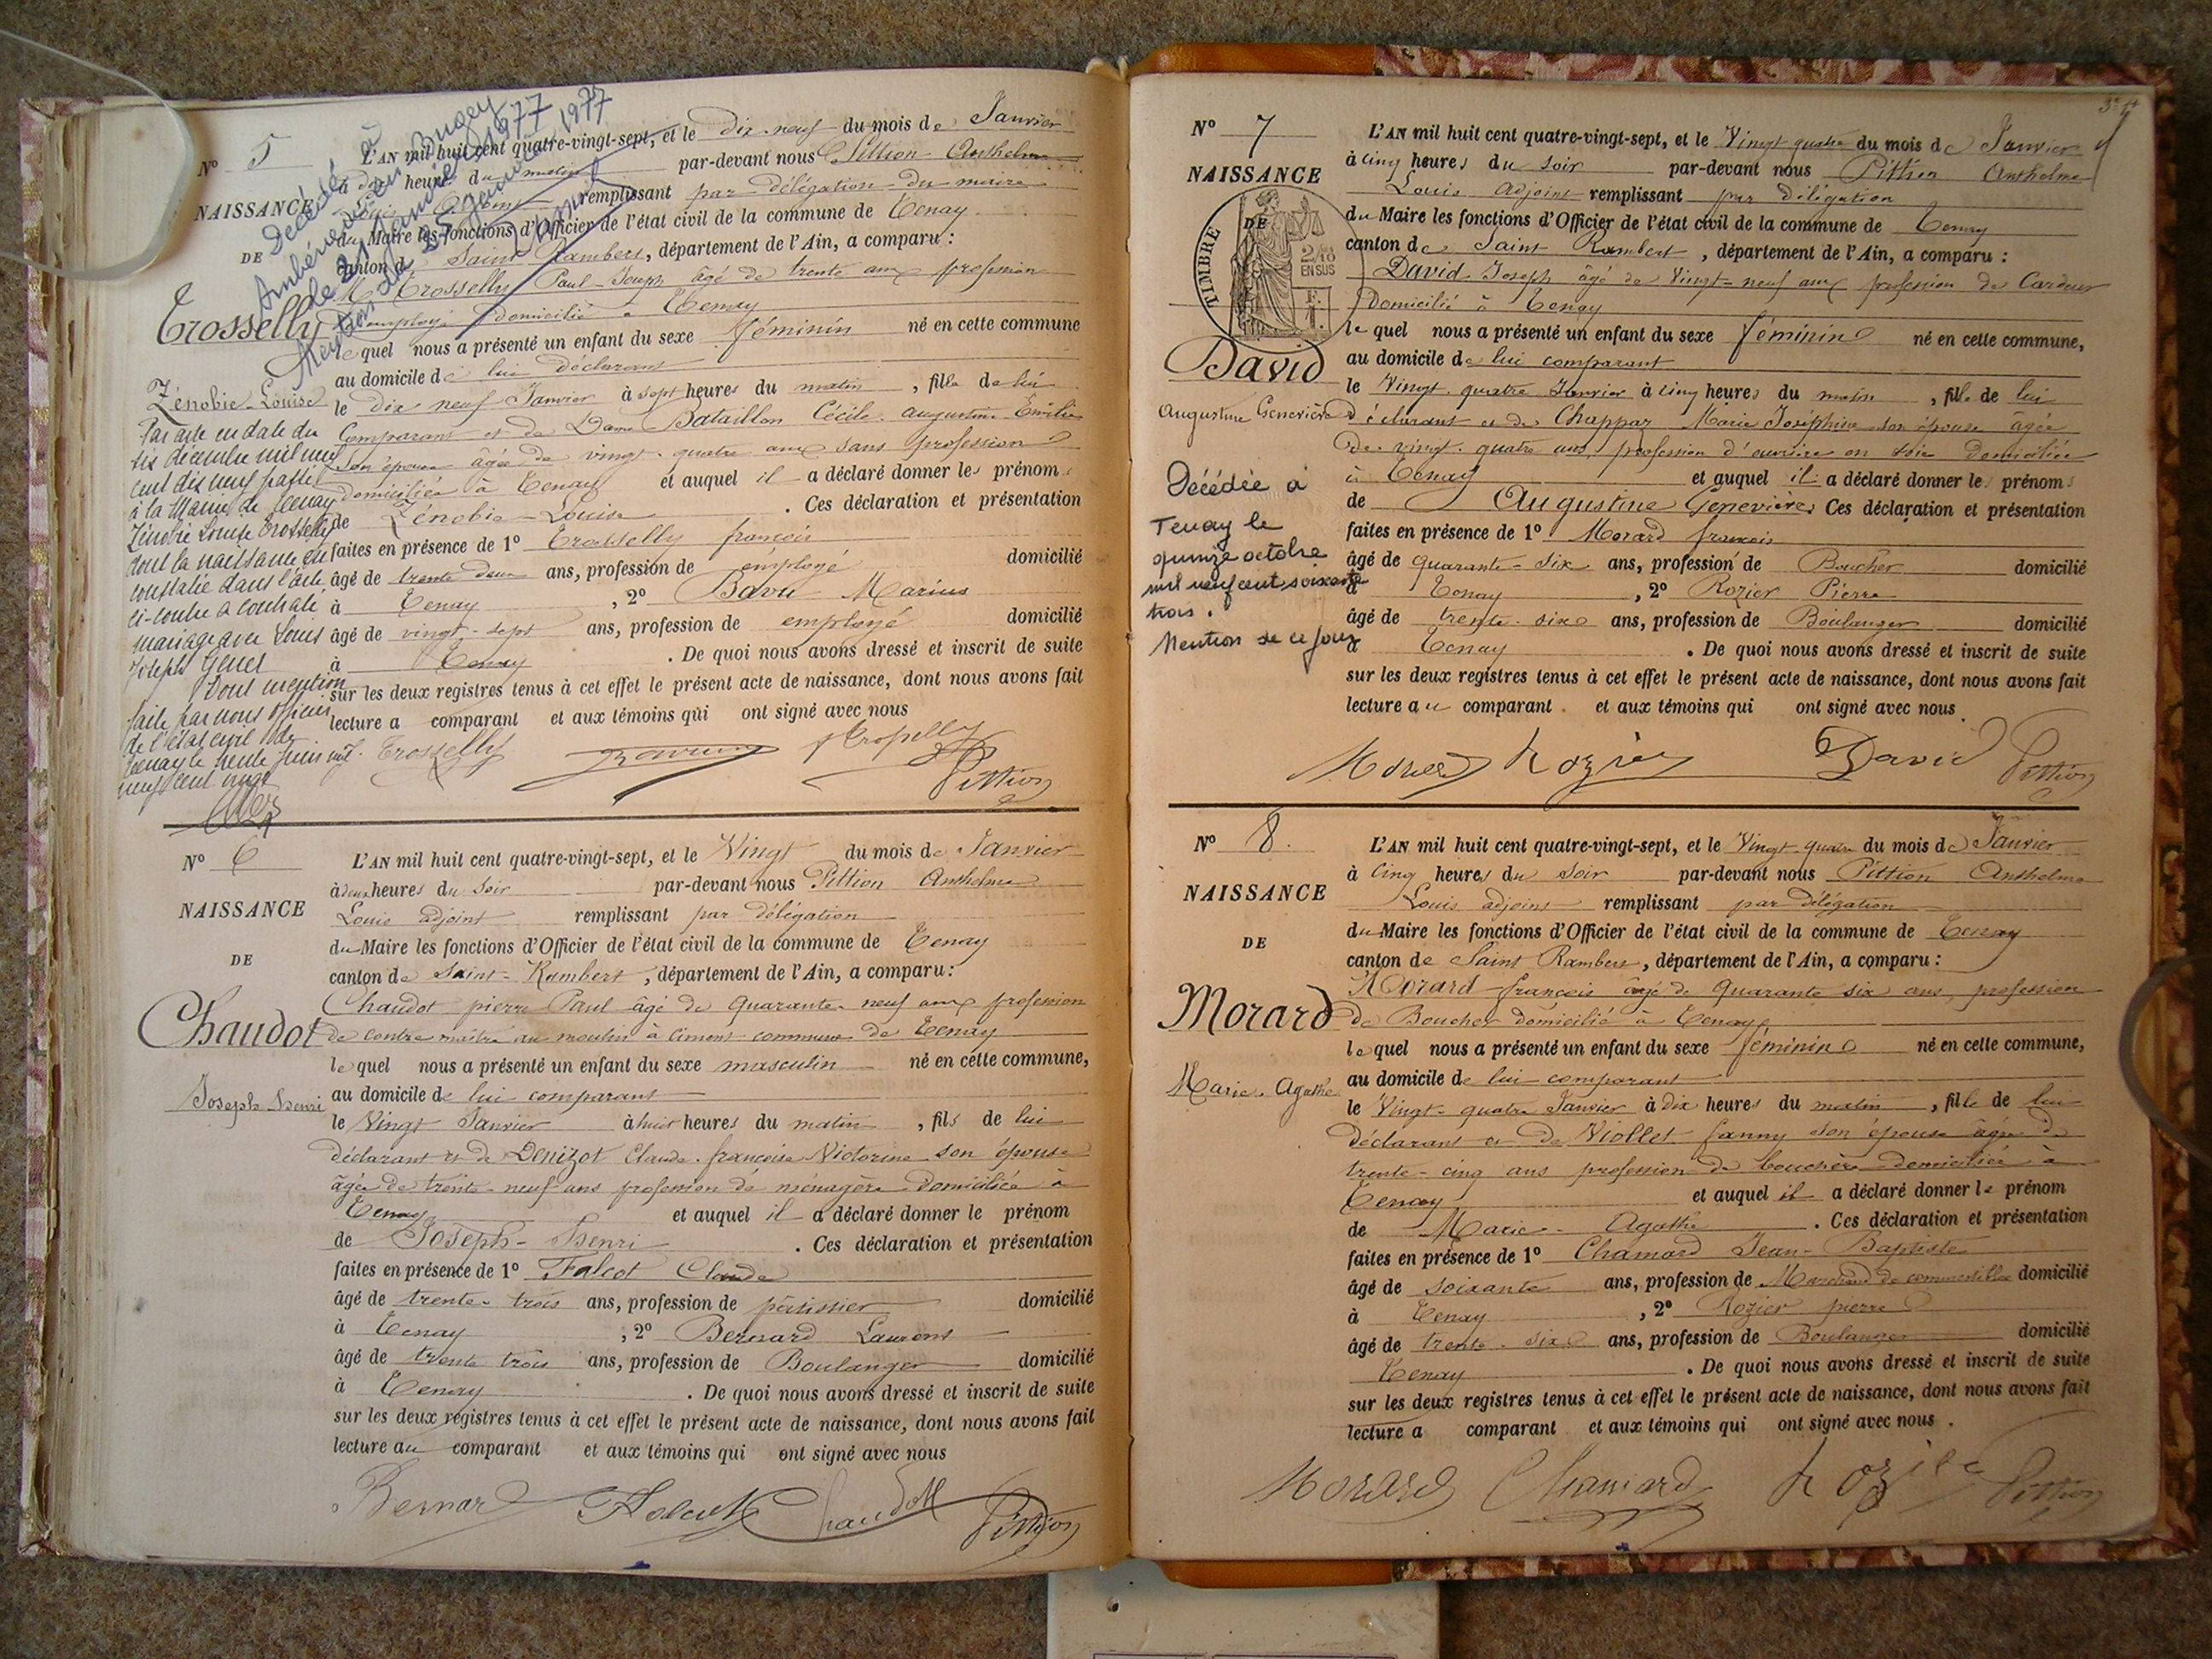 N° 5
NAISSANCE
DE
Trosselly
Zénobie-Louise
Décédée à
Ambérieu en Bugey
le 21 janvier 1977
Mention du 25 janvier 1977
Par acte en date du
six décembre mil neuf
cent dix neuf passé
à la Mairie de Tenay
Zénobie Louise Trosselly
dont la naissance est
constatée dans l'acte
ci-contre a contracté
mariage avec Louis
Joseph Genet
Dont mention
faite par nous officier
de l'état civil de
Tenay le trente juin mil
neuf cent vingt
L'AN mil huit cent quatre-vingt-sept, et le dix-neuf du mois de Janvier
à deux heures du matin par-devant nous Pittion Anthelme
Louis Adjoint remplissant par délégation du maire
du Maire les fonctions d'Officier de l'état civil de la commune de Tenay
canton de Saint Rambert, département de l'Ain, a comparu :
Mr Trosselly Paul-Joseph âgé de trente ans profession
d'employé domicilié à Tenay
le quel nous a présenté un enfant du sexe féminin né en cette commune
au domicile de lui déclarant
le dix neuf Janvier à sept heures du matin, fille de lui
Comparant et de Dame Bataillon Cécile augustine Emilie
son épouse âgée de vingt-quatre ans sans profession
domiciliée à Tenay et auquel il a déclaré donner les prénoms
de Zénobie-Louise. Ces déclaration et présentation
faites en présence de 1° Trosselly françois
âgé de trente deux ans, profession de employé domicilié
à Tenay, 2° Bavu Marius
âgé de vingt-sept ans, profession de employé domicilié
à Tenay. De quoi nous avons dressé et inscrit de suite
sur les deux registres tenus à cet effet le présent acte de naissance, dont nous avons fait
lecture a comparant et aux témoins qui ont signé avec nous
Trosselly Trosselly
Pittion
N° 6
NAISSANCE
DE
Chaudot
Joseph Henri
L'AN mil huit cent quatre-vingt-sept, et le Vingt du mois de Janvier
à deux heures du soir par-devant nous Pittion Anthelme
Louis adjoint remplissant par délégation
du Maire les fonctions d'Officier de l'état civil de la commune de Tenay
canton de Saint-Rambert, département de l'Ain, a comparu :
Chaudot pierre Paul âgé de quarante-neuf ans profession
de contre maître au moulin à ciment commune de Tenay
le quel nous a présenté un enfant du sexe masculin né en cette commune,
au domicile de lui comparant
le Vingt Janvier à huit heures du matin, fils de lui
déclarant et de Denizot Claude françoise Victorine son épouse
âgée de trente-neuf ans profession de ménagère domiciliée à
Tenay et auquel il a déclaré donner le prénom
de Joseph-Henri. Ces déclaration et présentation
faites en présence de 1° Falcot Claude
âgé de trente-trois ans, profession de pâtissier domicilié
à Tenay, 2° Bernard Laurent
âgé de trente trois ans, profession de Boulanger domicilié
à Tenay. De quoi nous avons dressé et inscrit de suite
sur les deux registres tenus à cet effet le présent acte de naissance, dont nous avons fait
lecture au comparant et aux témoins qui ont signé avec nous
Bernard Falcot Chaudot Pittion
N° 7
NAISSANCE
DE
TIMBRE
2/10
EN SUS
David
Augustine Geneviève
Décédée à
Tenay le
quinze octobre
mil neuf cent soixante
trois.
Mention de ce jour
L'AN mil huit cent quatre-vingt-sept, et le Vingt quatre du mois de Janvier
à cinq heures du soir par-devant nous Pittion Anthelme
Louis adjoint remplissant par délégation
du Maire les fonctions d'Officier de l'état civil de la commune de Tenay
canton de Saint Rambert, département de l'Ain, a comparu :
David Joseph âgé de Vingt-neuf ans profession de Cardeur
domicilié à Tenay
le quel nous a présenté un enfant du sexe féminin né en cette commune,
au domicile de lui comparant
le Vingt quatre Janvier à cinq heures du matin, fille de lui
déclarant et de Chappaz Marie Joséphine son épouse âgée
de vingt-quatre ans, profession d'ouvrière en soie domiciliée
à Tenay et auquel il a déclaré donner les prénoms
de Augustine Geneviève. Ces déclaration et présentation
faites en présence de 1° Morard françois
âgé de quarante-six ans, profession de Boucher domicilié
à Tenay, 2° Rozier Pierre
âgé de trente-six ans, profession de Boulanger domicilié
à Tenay. De quoi nous avons dressé et inscrit de suite
sur les deux registres tenus à cet effet le présent acte de naissance, dont nous avons fait
lecture au comparant et aux témoins qui ont signé avec nous.
Morard Rozier David Pittion
N° 8.
NAISSANCE
DE
Morard
Marie-Agathe
L'AN mil huit cent quatre-vingt-sept, et le Vingt-quatre du mois de Janvier
à cinq heures du soir par-devant nous Pittion Anthelme
Louis adjoint remplissant par délégation
du Maire les fonctions d'Officier de l'état civil de la commune de Tenay
canton de Saint Rambert, département de l'Ain, a comparu :
Morard françois âgé de quarante six ans, profession
de Boucher domicilié à Tenay
le quel nous a présenté un enfant du sexe féminin né en cette commune,
au domicile de lui comparant
le Vingt-quatre Janvier à dix heures du matin, fille de lui
déclarant et de Viollet fanny son épouse âgée de
trente-cinq ans profession de bouchère domiciliée à
Tenay et auquel il a déclaré donner le prénom
de Marie-Agathe. Ces déclaration et présentation
faites en présence de 1° Chamard Jean-Baptiste
âgé de soixante ans, profession de Marchand de comestibles domicilié
à Tenay, 2° Rozier pierre
âgé de trente-six ans, profession de Boulanger domicilié
Tenay. De quoi nous avons dressé et inscrit de suite
sur les deux registres tenus à cet effet le présent acte de naissance, dont nous avons fait
lecture a comparant et aux témoins qui ont signé avec nous.
Morard Chamard Rozier Pittion